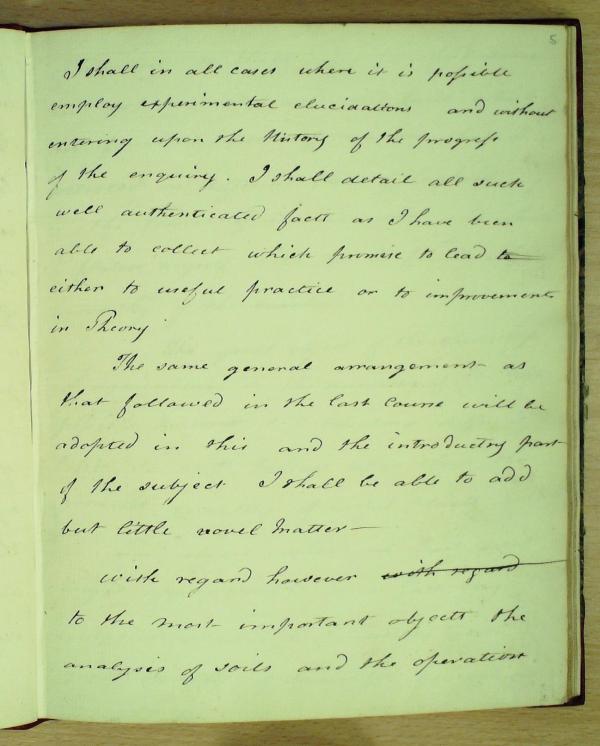 5
I shall in all cases where it is possible
employ experimental elucidations and without
entering upon the History of the progress
of the enquiry. I shall detail all such
well authenticated facts as I have been
able to collect which promise to lead to
either to useful practice or to improvements
in Theory
The same general arrangement as
that followed in the last Course will be
adopted in this and the introductry part
of the subject I shall be able to add
but little novel matter—
with regard however with regard
to the most important objects the
analysis of soils and the operation